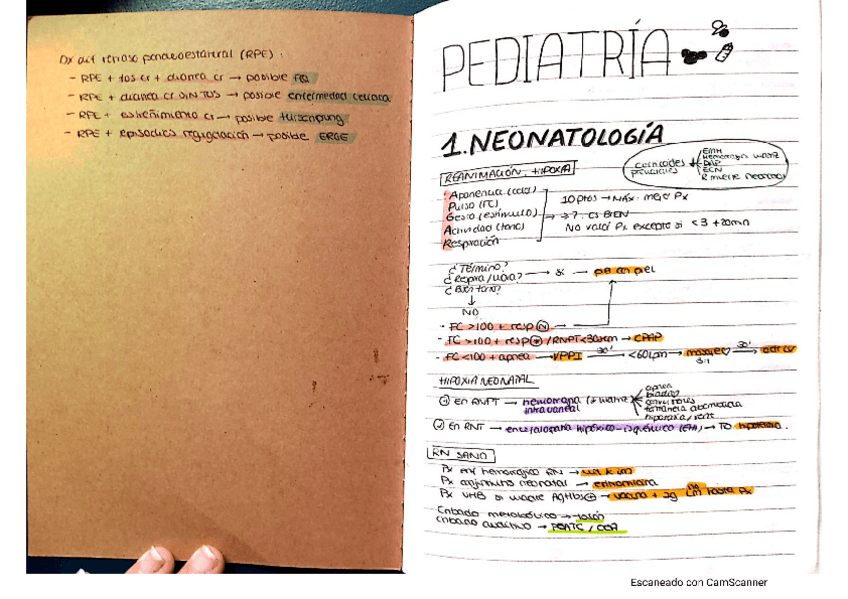 Dx act retraso ponderoestatural (RPE):
- RPE + tos cr + diarrea cr → posible FQ
- RPE + diarrea cr SIN TOS → posible enfermedad celiaca
- RPE + estreñimiento cr → posible Hirschprung
- RPE + episodios regurgitación → posible ERGE
PEDIATRÍA
1. NEONATOLOGÍA
REANIMACIÓN - HIPOXIA
corticoides prenatales
EMH
Hemorragia matriz
DAP
ECN
R muerte neonatal
Apariencia (color)
Pulso (FC)
Gesto (estímulo)
Actividad (tono)
Respiración
10 ptos → MÁX. mejor Px
→ >7: es BIEN
No valor Px excepto si <3 + 20mn
¿Término?
¿Respira/llora? → sí → piel con piel
¿Buen tono?
↓
NO
- FC >100 + resp N →
- FC >100 + resp /RNPT<30sem → CPAP
- FC <100 + apnea → VPPI 30' → <60lpm → masaje 3:1 30' → adr IV
HIPOXIA NEONATAL
① En RNPT → hemorragia intraventri (+ matriz)
apnea
bradi
convulsiones
hipotensión
② En RNT → encefalopatía hipóxico-isquémica (EHI) → TO hipotermia.
RN SANO
Px enf hemorrágica RN → vit K IM
Px conjuntivitis neonatal → eritromicina
Px VHB si madre AgHBs ⊕ → vacuna + Ig IM
Cribado metabólico → talón
Cribado auditivo → PEATC / OEA
Escaneado con CamScanner